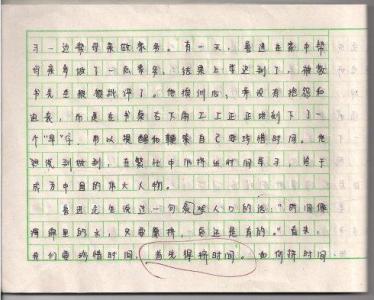 了一边帮母亲做家务。有一天,鲁迅在家中帮
母亲多做了一点家务,结果上学迟到了,被教
书先生狠狠批评了。他挨训后,并没有抱怨和
退缩,而是在书桌右下角工工正正地刻下了一
个“早”字,用以提醒和鞭策自己要珍惜时间。他
说到做到,在繁忙中挤出时间学习,终于
成为中国的伟大人物。
鲁迅先生说过一句脍炙人口的话:“时间像
海绵里的水,只要愿挤,总还是有的。”首先,
我们要珍惜时间,首先得挤时间。如何挤时间